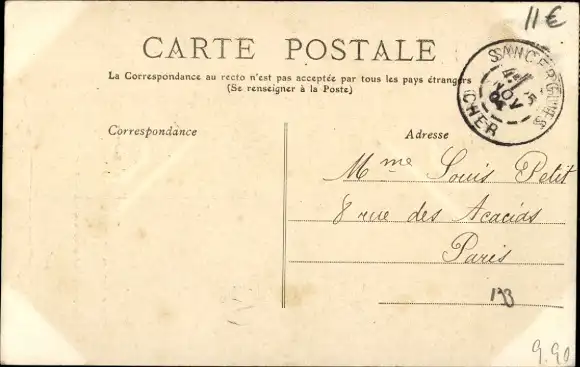 11€
CARTE POSTALE
La Correspondance au recto n'est pas acceptée par tous les pays étrangers
(Se renseigner à la Poste)
SANCERGUES
NOV
04
CHER
Correspondance
Adresse
Mme Louis Petit
8 rue des Acacias
Paris
193
9.90